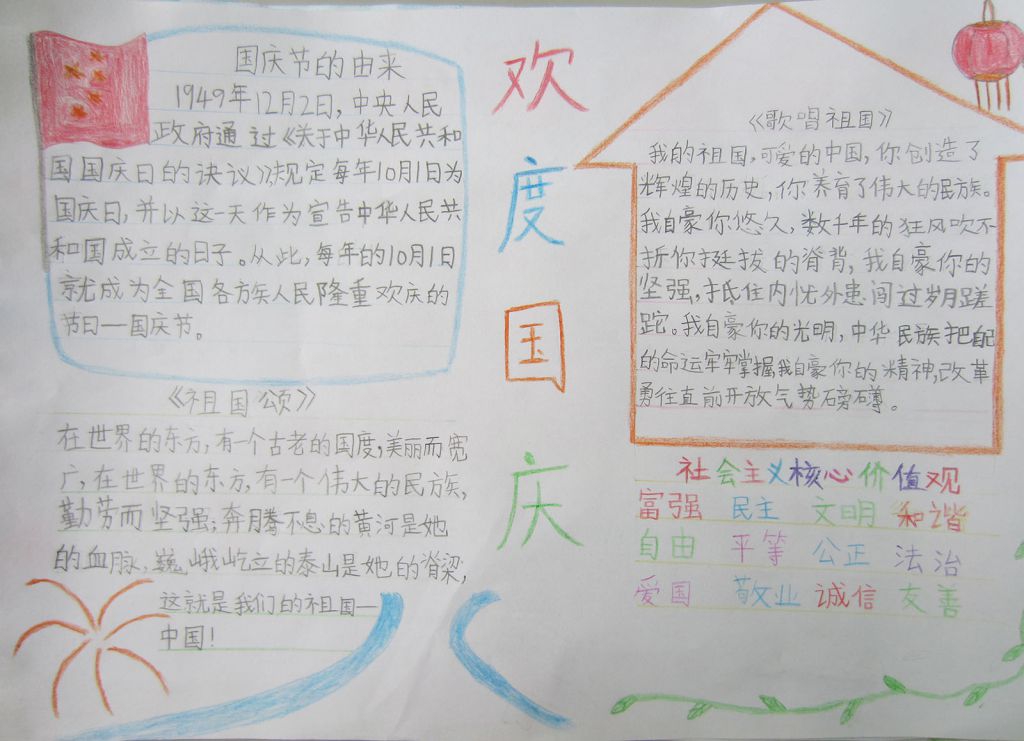 国庆节的由来
1949年12月2日,中央人民
政府通过《关于中华人民共和
国国庆日的决议》,规定每年10月1日为
国庆日,并以这一天作为宣告中华人民共
和国成立的日子。从此,每年的10月1日
就成为全国各方族人民隆重欢庆的
节日—国庆节。
《祖国颂》
在世界的东方,有一个古老的国度,美丽而宽
广,在世界的东方,有一个伟大的民族,
勤劳而坚强;奔腾不息的黄河是她
的血脉,巍峨屹立的泰山是她的脊梁,
这就是我们的祖国—
中国!
欢
度
国
庆
《歌唱祖国》
我的祖国,可爱的中国,你创造了
辉煌的历史,你养育了伟大的民族。
我自豪你悠久,数千年的狂风吹不
折你挺拔的脊背,我自豪你的
坚强,抵住内忧外患闯过岁月蹉
跎。我自豪你的光明,中华民族把自
的命运牢牢掌握,我自豪你的精神,改革
勇往直前开放气势磅礴。
社会主义核心价值观
富强 民主 文明 和谐
自由 平等 公正 法治
爱国 敬业 诚信 友善